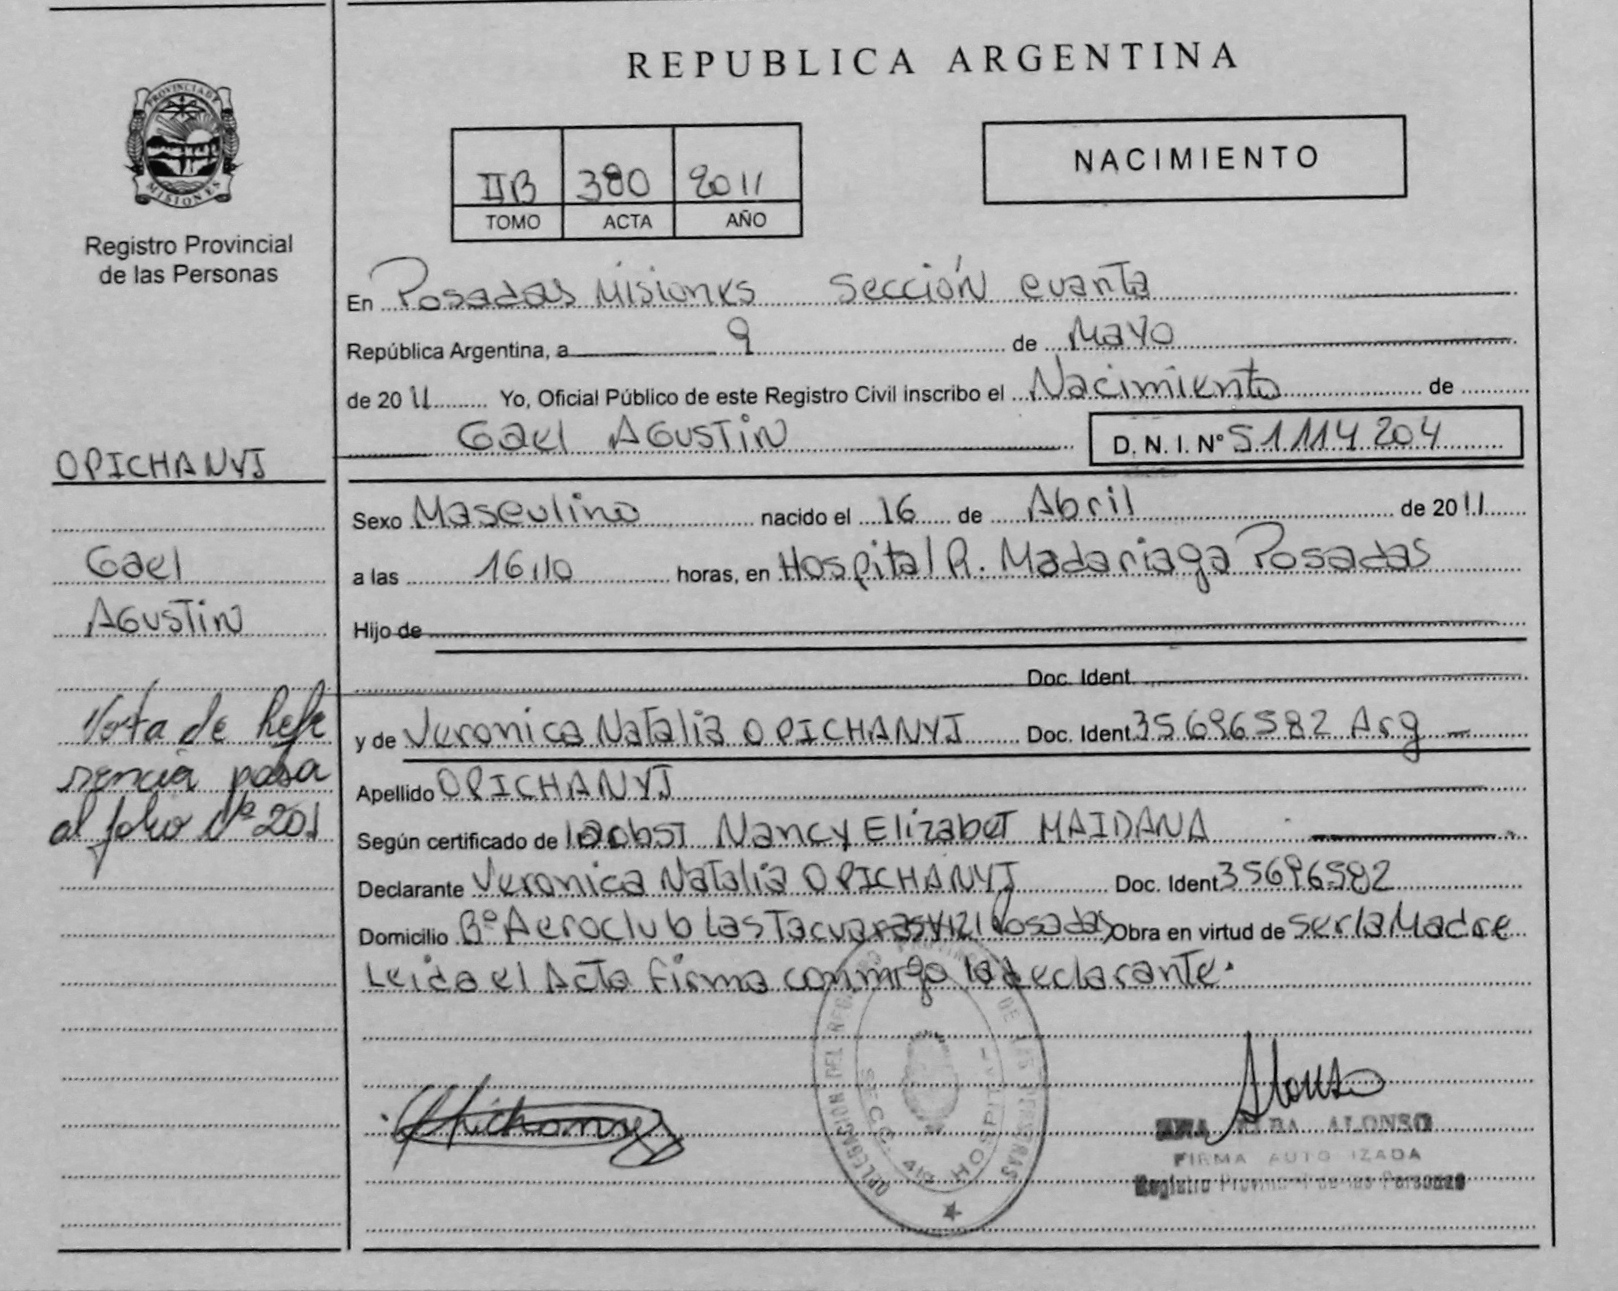 REPUBLICA ARGENTINA
PROVINCIA DE
MISIONES
Registro Provincial
de las Personas
NACIMIENTO
IIB 380 2011
TOMO ACTA AÑO
En Posadas Misiones Sección cuarta
República Argentina, a 9 de Mayo
de 2011 Yo, Oficial Público de este Registro Civil inscribo el Nacimiento de
Gael AGUSTIN D. N. I. Nº 51.114.204
OPICHANYJ
Gael
AGUSTIN
Nota de Refe
rencia pasa
al folio Nº 201
Sexo Masculino nacido el 16 de Abril de 2011
a las 16,10 horas, en Hospital R. Madariaga Posadas
Hijo de
Doc. Ident.
y de Veronica Natalia OPICHANYJ Doc. Ident. 35.696.582 Arg
Apellido OPICHANYJ
Según certificado de Nancy Elizabet MAIDANA
Declarante Veronica Natalia OPICHANYJ Doc. Ident 35696582
Domicilio Bº Aeroclub Las Tacuaras Posadas Obra en virtud de ser la Madre
Leida el Acta firma conmigo la declarante.
DELEGACION DEL REGISTRO PROVINCIAL DE LAS PERSONAS
SECC. 4ta HOSPITAL
Opichanyj
Alonso
ELBA ALONSO
FIRMA AUTORIZADA
Registro Provincial de las Personas